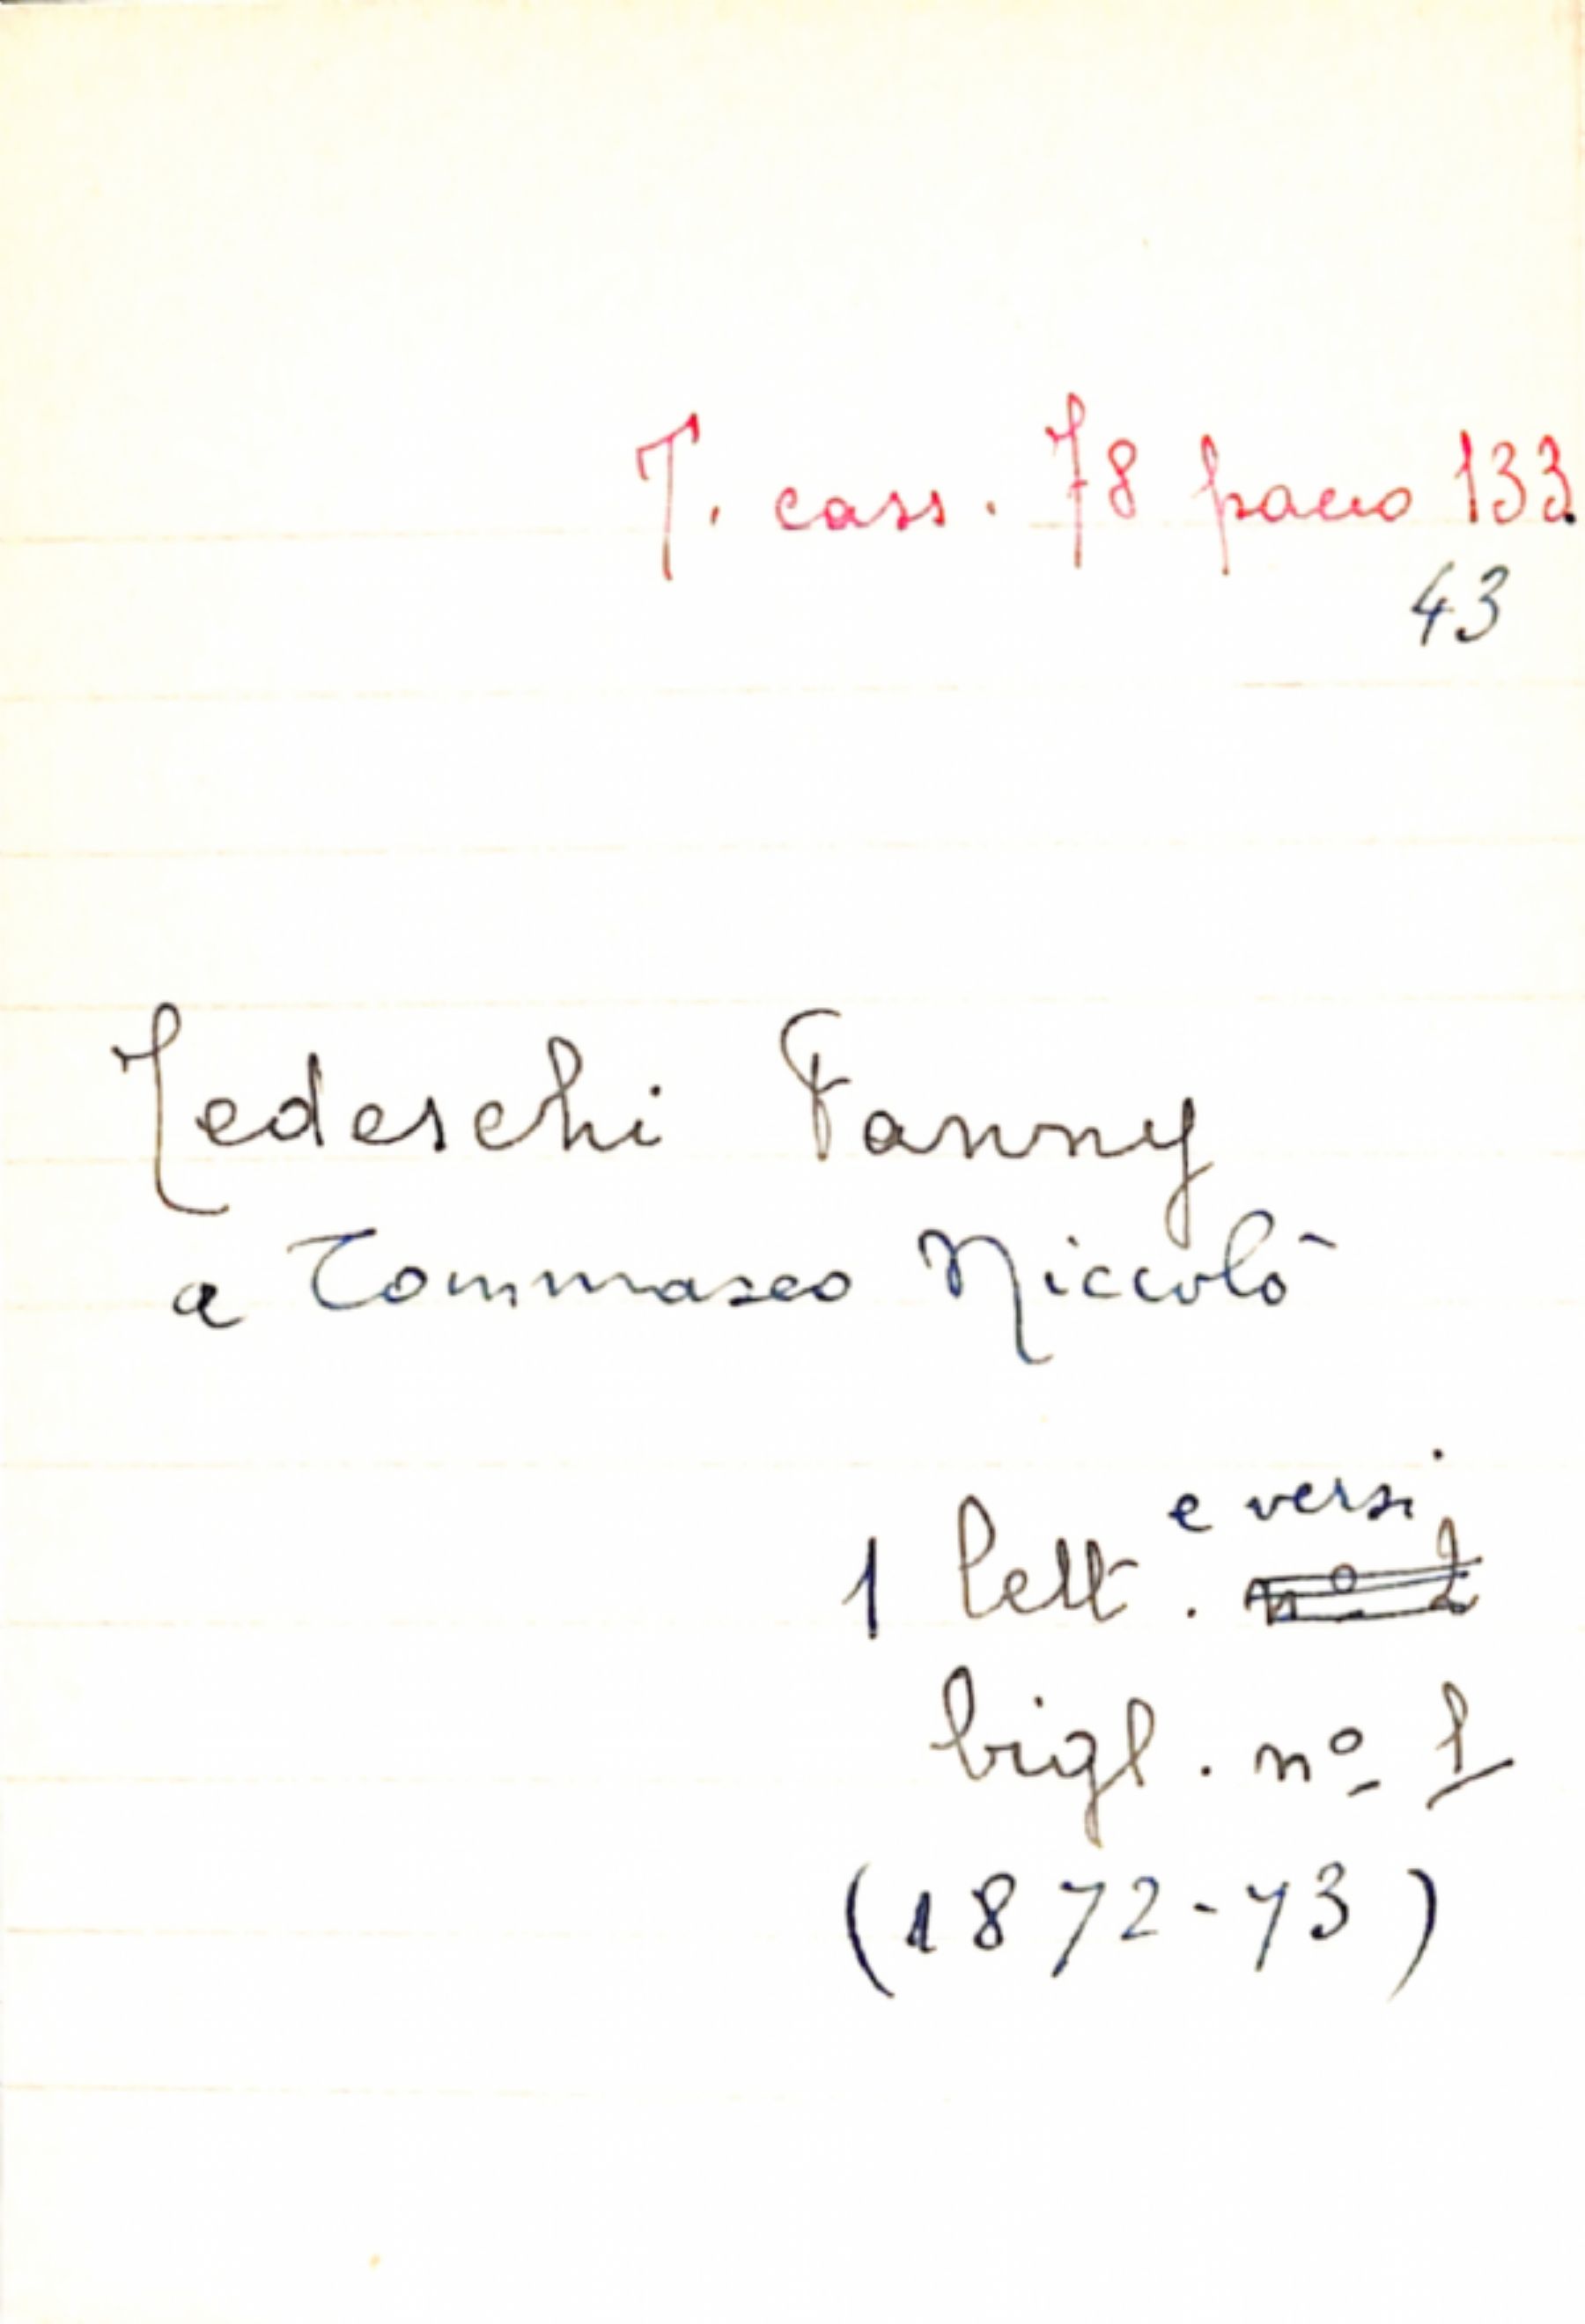 T. cass. 78 pacco 133.
43
Tedeschi Fanny
a Tommaseo Niccolò
e versi
1 lett. n° 2
bigl. nº 1
(1872-73)